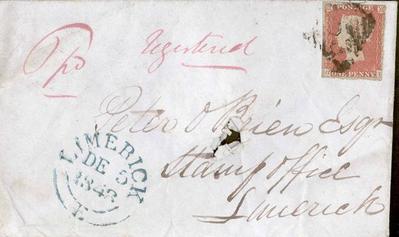 POSTAGE
Ppd Registered
ONE PENNY
Peter O'Brien Esqr
Stamp office
Limerick
LIMERICK
DE 5
184
E